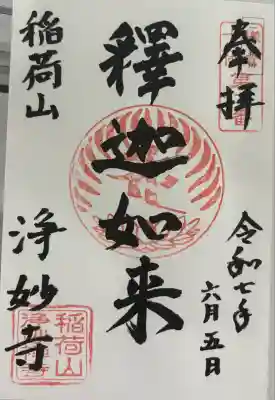 奉拝
令和七年
六月五日
釋迦如来
稲荷山
浄妙寺
稲荷山
浄妙禅寺